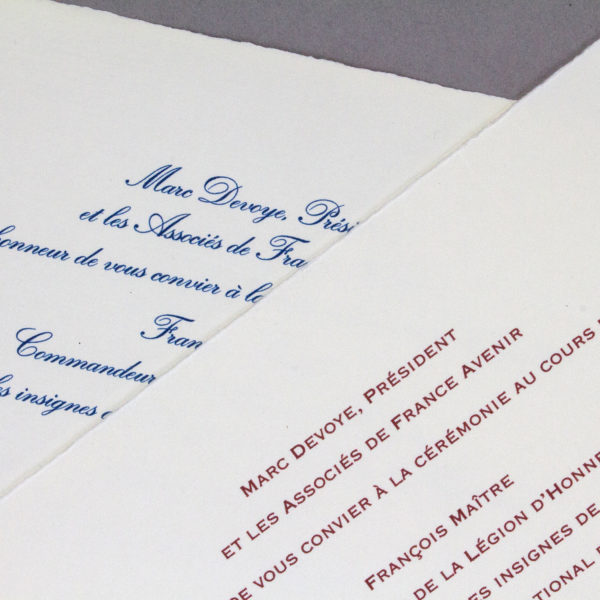 Marc Devoye, Prési
et les Associés de Fra
honneur de vous convier à la
Fran
Commandeur
les insignes
MARC DEVOYE, PRÉSIDENT
ET LES ASSOCIÉS DE FRANCE AVENIR
DE VOUS CONVIER À LA CÉRÉMONIE AU COURS
FRANÇOIS MAÎTRE
DE LA LÉGION D'HONNE
ES INSIGNES DE
TIONAL